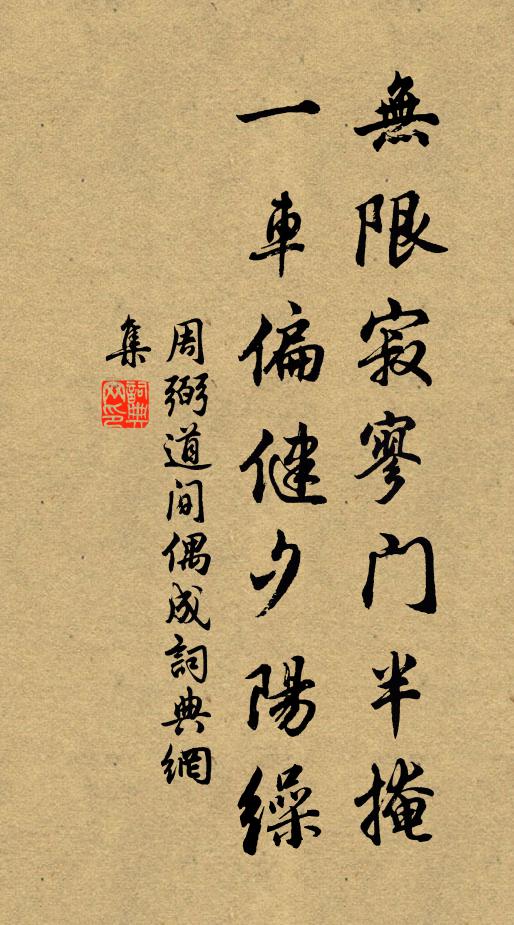 無限寂寥门半掩
一車偏健夕陽繰
周弼道间偶成詞典網
集
詞典网印